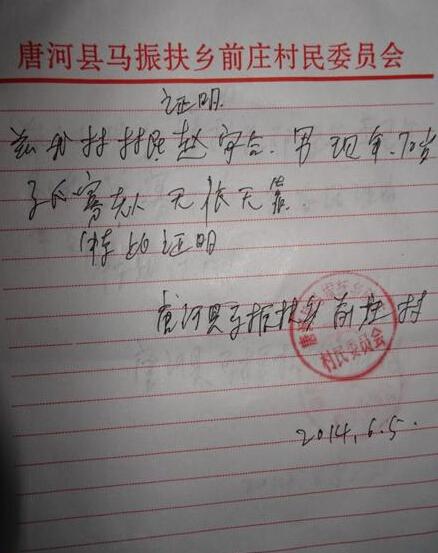 唐河县马振扶乡前庄村民委员会
证明
兹我村村民赵守合. 男 现年70岁
孤寡老人 无依无靠.
特此证明
唐河县马振扶乡前庄村
村民委员会
2014.6.5.